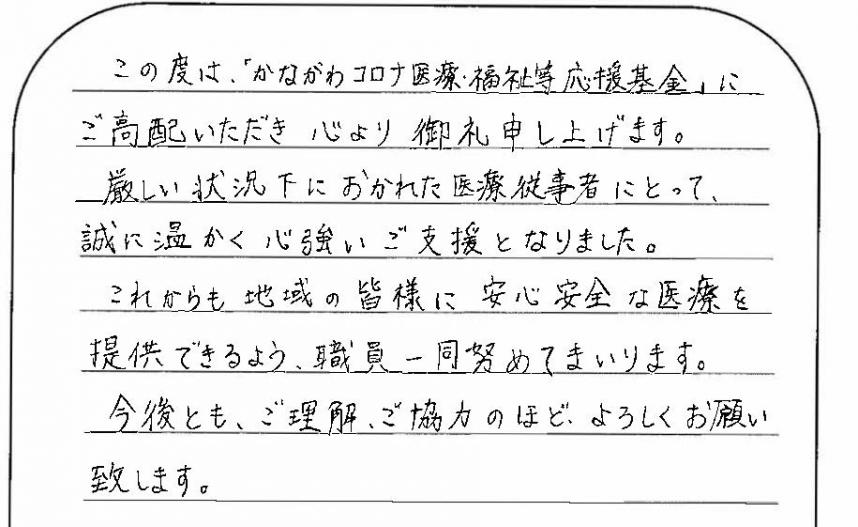 この度は、「かながわコロナ医療・福祉等応援基金」に
ご高配いただき 心より 御礼申し上げます。
厳しい状況下におかれた医療従事者にとって、
誠に温かく心強いご支援となりました。
これからも地域の皆様に安心安全な医療を
提供できるよう、職員一同努めてまいります。
今後とも、ご理解、ご協力のほど、よろしくお願い
致します。